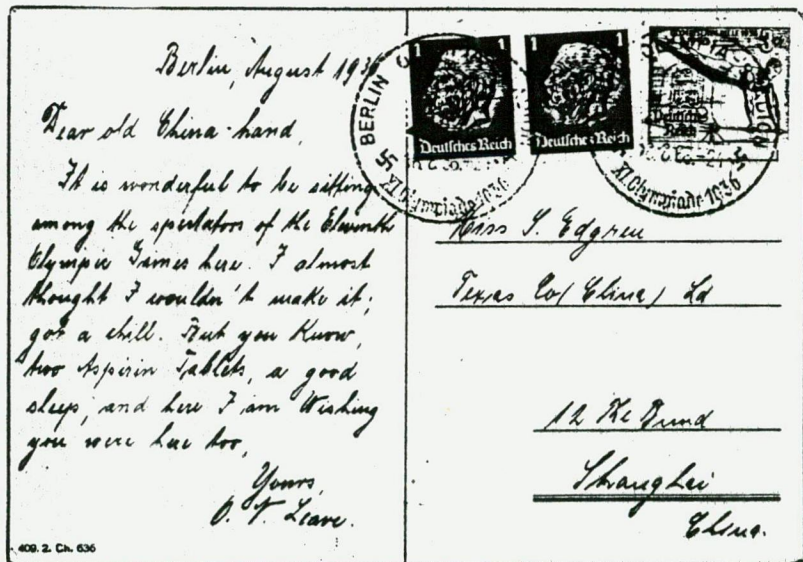 Berlin, August 1936
Dear old China-hand,
It is wonderful to be sitting
among the spectators of the Eleventh
Olympic Games here. I almost
thought I wouldn't make it;
got a chill. But you know,
two Aspirin Tablets, a good
sleep, and here I am Wishing
you were here too,
Yours,
O. V. Leave.
409. 2. Ch. 636
1 1
Deutsches Reich
1 1
Deutsches Reich
Deutsches
Reich
BERLIN
XI. Olympiade 1936
XI. Olympiade 1936
Miss S. Edgren
Texas Co/China/ Ld
12 The Bund
Shanghai
China.